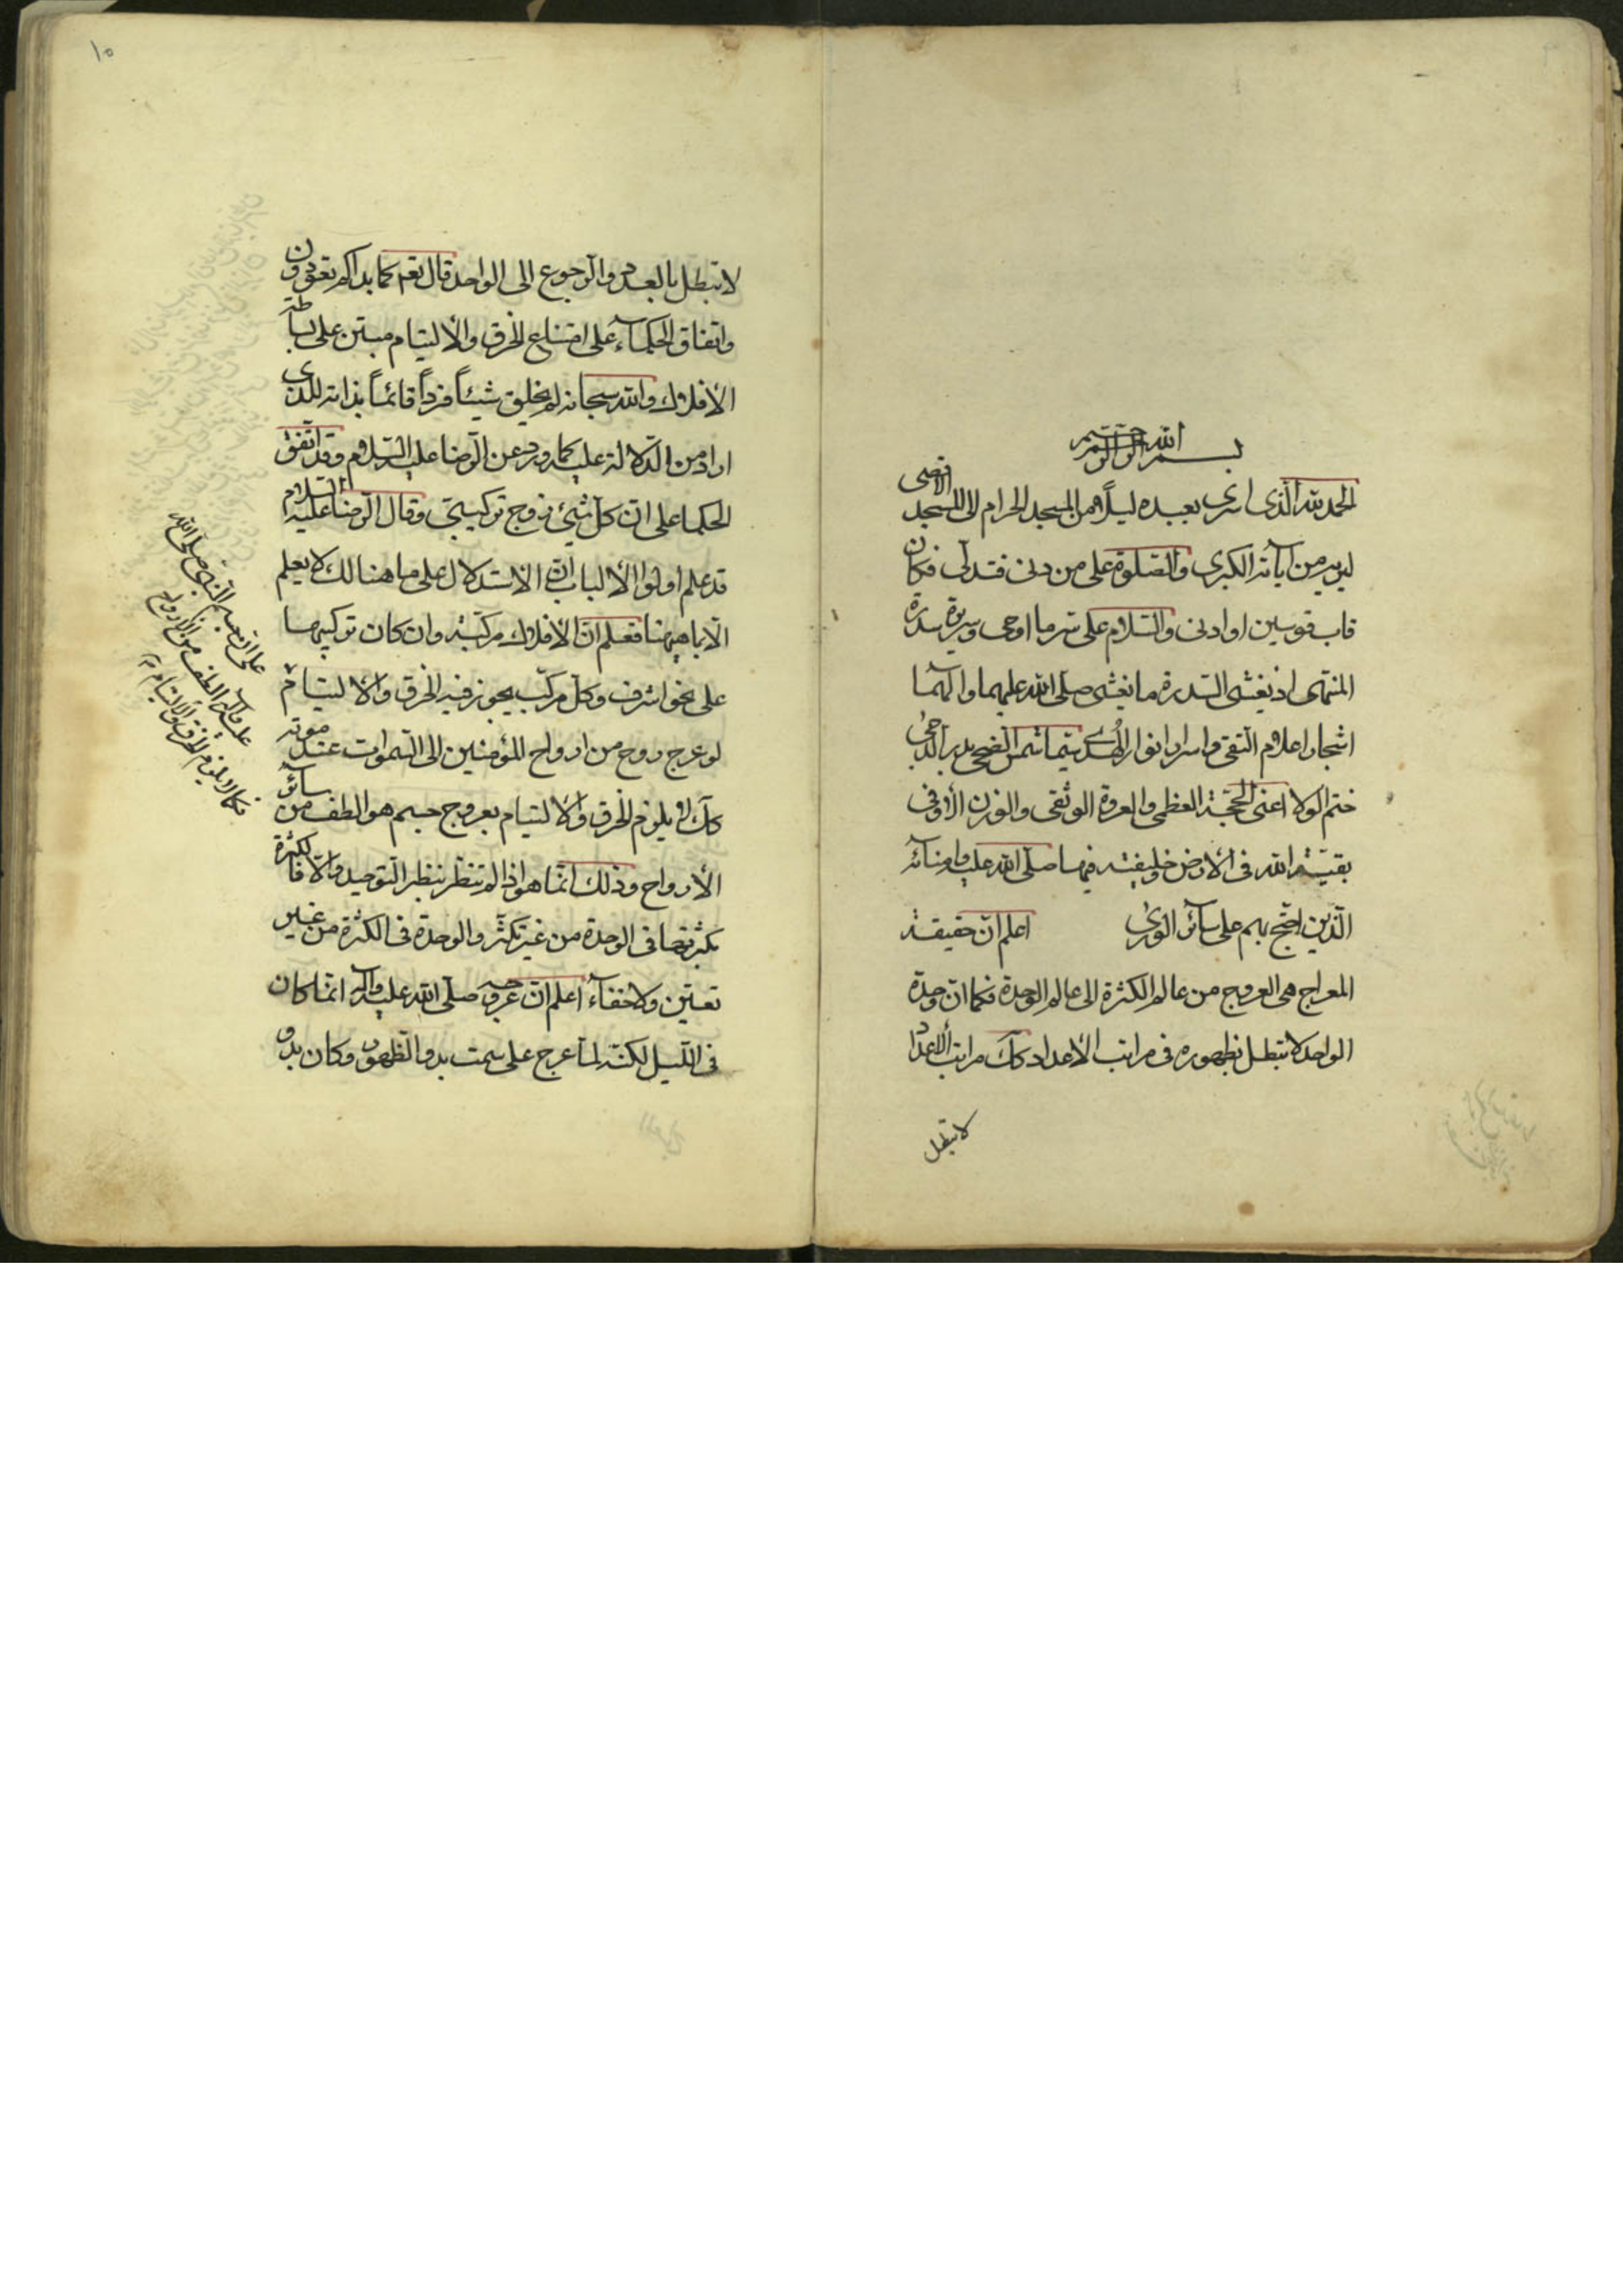 بسم الله الرحمن الرحيم
الحمد لله الذى اسرى بعبده ليلاً من المسجد الحرام الى المسجد الاقصى
ليريه من آياته الكبرى والصلوة على من دنى فتدلى فكان
قاب قوسين او ادنى والسلام على سر ما اوحى وسريرة سدرة
المنتهى اذ يغشى السدرة ما يغشى صلى الله عليهما وآلهما
اشجار اعلام التقى واسرار انوار الهدى سيما شمس الضحى بدر الدجى
ختم الولا اعنى الحجة العظمى والعروة الوثقى والوزن الأوفى
بقية الله فى الأرض وخليفته فيها صلى الله عليه وامنائه
الذين احتج بهم على سائر الورى اعلم ان حقيقة
المعراج هى العروج من عالم الكثرة الى عالم الوحدة فكما ان وحدة
الواحد لا تبطل بظهوره فى مراتب الأعداد كك مراتب الأعداد
لا تبطل
١٠
لا تبطل بالعدد والرجوع الى الواحد قال تعم كما بداكم تعودون
واتفاق الحكماء على امتناع الخرق والألتيام مبتن على بساطة
الأفلاك والله سبحانه لم يخلق شيئاً فرداً قائماً بذاته للذى
اراد من الدلالة عليه كما ورد عن الرضا عليه السلام وقد اتفق
الحكما على ان كل شئ زوج تركيبى وقال الرضا عليه السلام
قد علم اولوا الألباب ان الاستدلال على ما هنالك لا يعلم
الا بما هيهنا فعلم ان الأفلاك مركبة وان كان تركيبها
على نحو اشرف وكل مركب يجوز فيه الخرق والألتيام
لو عرج روح من ارواح المؤمنين الى السموات عند موته
كك لا يلزم الخرق والألتيام بعروج جسم هو الطف من سائر
الأرواح وذلك انما هو اذا لم تنظر بنظر التوحيد والا فالكثرة
بكثرتها فى الوحدة من غير تكثر والوحدة فى الكثرة من غير
تعين ولا خفاء اعلم ان عروجه صلى الله عليه وآله انما كان
فى الليل لكنه لما عرج على سمت بدو الظهور وكان بدو
على ان جسم النبى صلى الله
عليه وآله الطف من الأرواح
فكما لا يلزم الخرق والألتيام